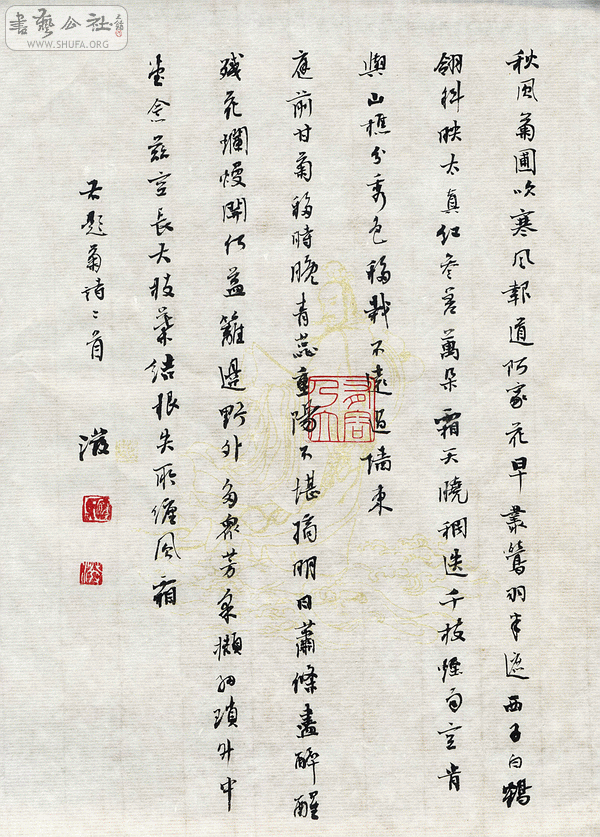 書藝公社
WWW.SHUFA.ORG
秋風菊圃吹寒風報道阿家花早叢鶯羽半遮西子白鶴
翎斜映太真紅參差萬朵霜天曉稠迭千枝煙雨空肯
與山樵分秀色移栽不遠過墻東
庭前甘菊移時晚青蕊重陽不堪摘明日蕭條盡醉醒
殘花爛熳開何益籬邊野外多衆芳采擷細瑣升中
堂念茲空長大枝葉結根失所纏風霜
右題菊詩二首
有容乃大